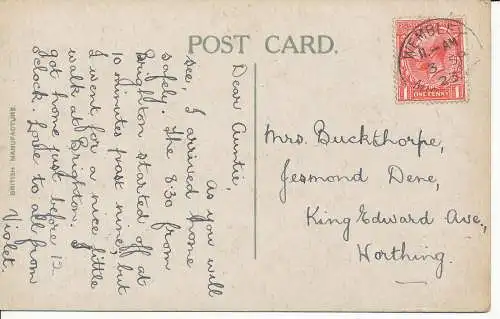 POST CARD.
BRITISH MANUFACTURE.
Dear Auntie,
As you will
see, I arrived home
safely. The 8:30 from
Brighton started off at
10 minutes past nine, but
I went for a nice little
walk at Brighton.
got home just before 12
o'clock. Love to all from
Violet.
WEMBLEY
11-AM
3
23
ONE PENNY
Mrs. Buckthorpe,
Jesmond Dene,
King Edward Ave.,
Worthing.